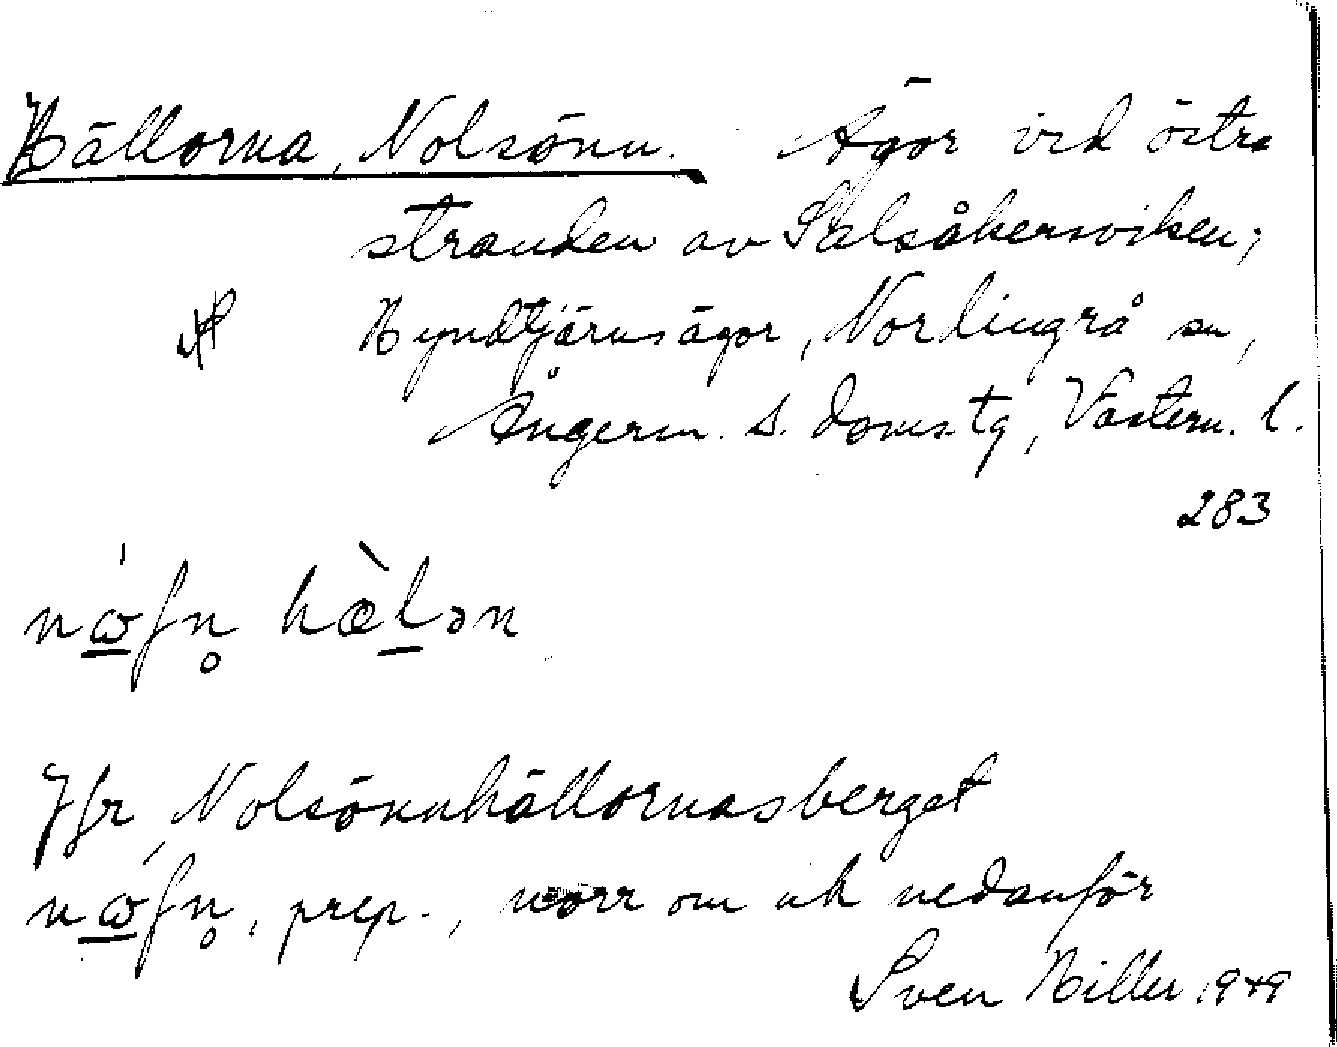 Hällorna, Nolsönn. Ägor vid östra
stranden av Salsåkersviken;
Hyndtjärnsägor, Nordingrå sn,
Ångerm. s. doms. tg, Västern. l.
283
Jfr Nolsönnhällornasberget
prep., norr om och nedanför
Sven Hiller 1949